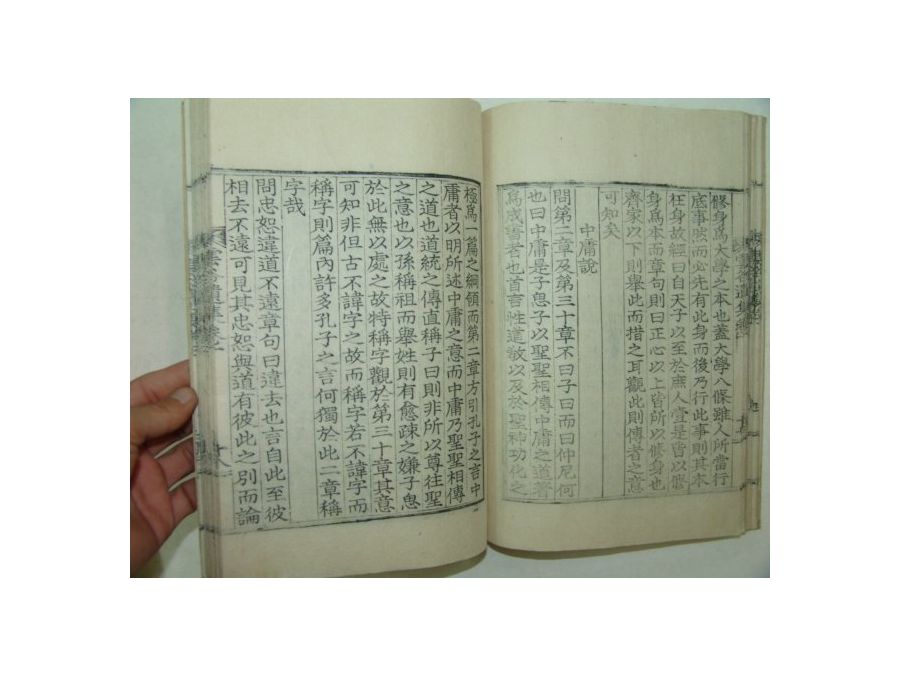 修身爲大學之本也蓋大學八條雖人所當行
底事然而必先有此身而後乃行此事則其本
在身故經曰自天子以至於庶人壹是皆以修
身爲本而章句則曰正心以上皆所以修身也
齊家以下則舉此而措之耳觀此則傳者之意
可知矣
中庸說
問第二章及第三十章不曰子曰而曰仲尼何
也曰中庸是子思子以聖聖相傳中庸之道著
爲成書者也首言性道敎以及於聖神功化之
極爲一篇之綱領而第二章方引孔子之言中
庸者以明所述中庸之意而中庸乃聖聖相傳
之道也道統之傳直稱子曰則非所以尊往聖
之意也以孫稱祖而舉姓則有愈疎之嫌子思
於此無以處之故特稱字觀於第三十章其意
可知非但古不諱字之故而稱字若不諱字而
稱字則篇內許多孔子之言何獨於此二章稱
字哉
問忠恕違道不遠章句曰違去也言自此至彼
相去不遠可見其忠恕與道有彼此之別而論